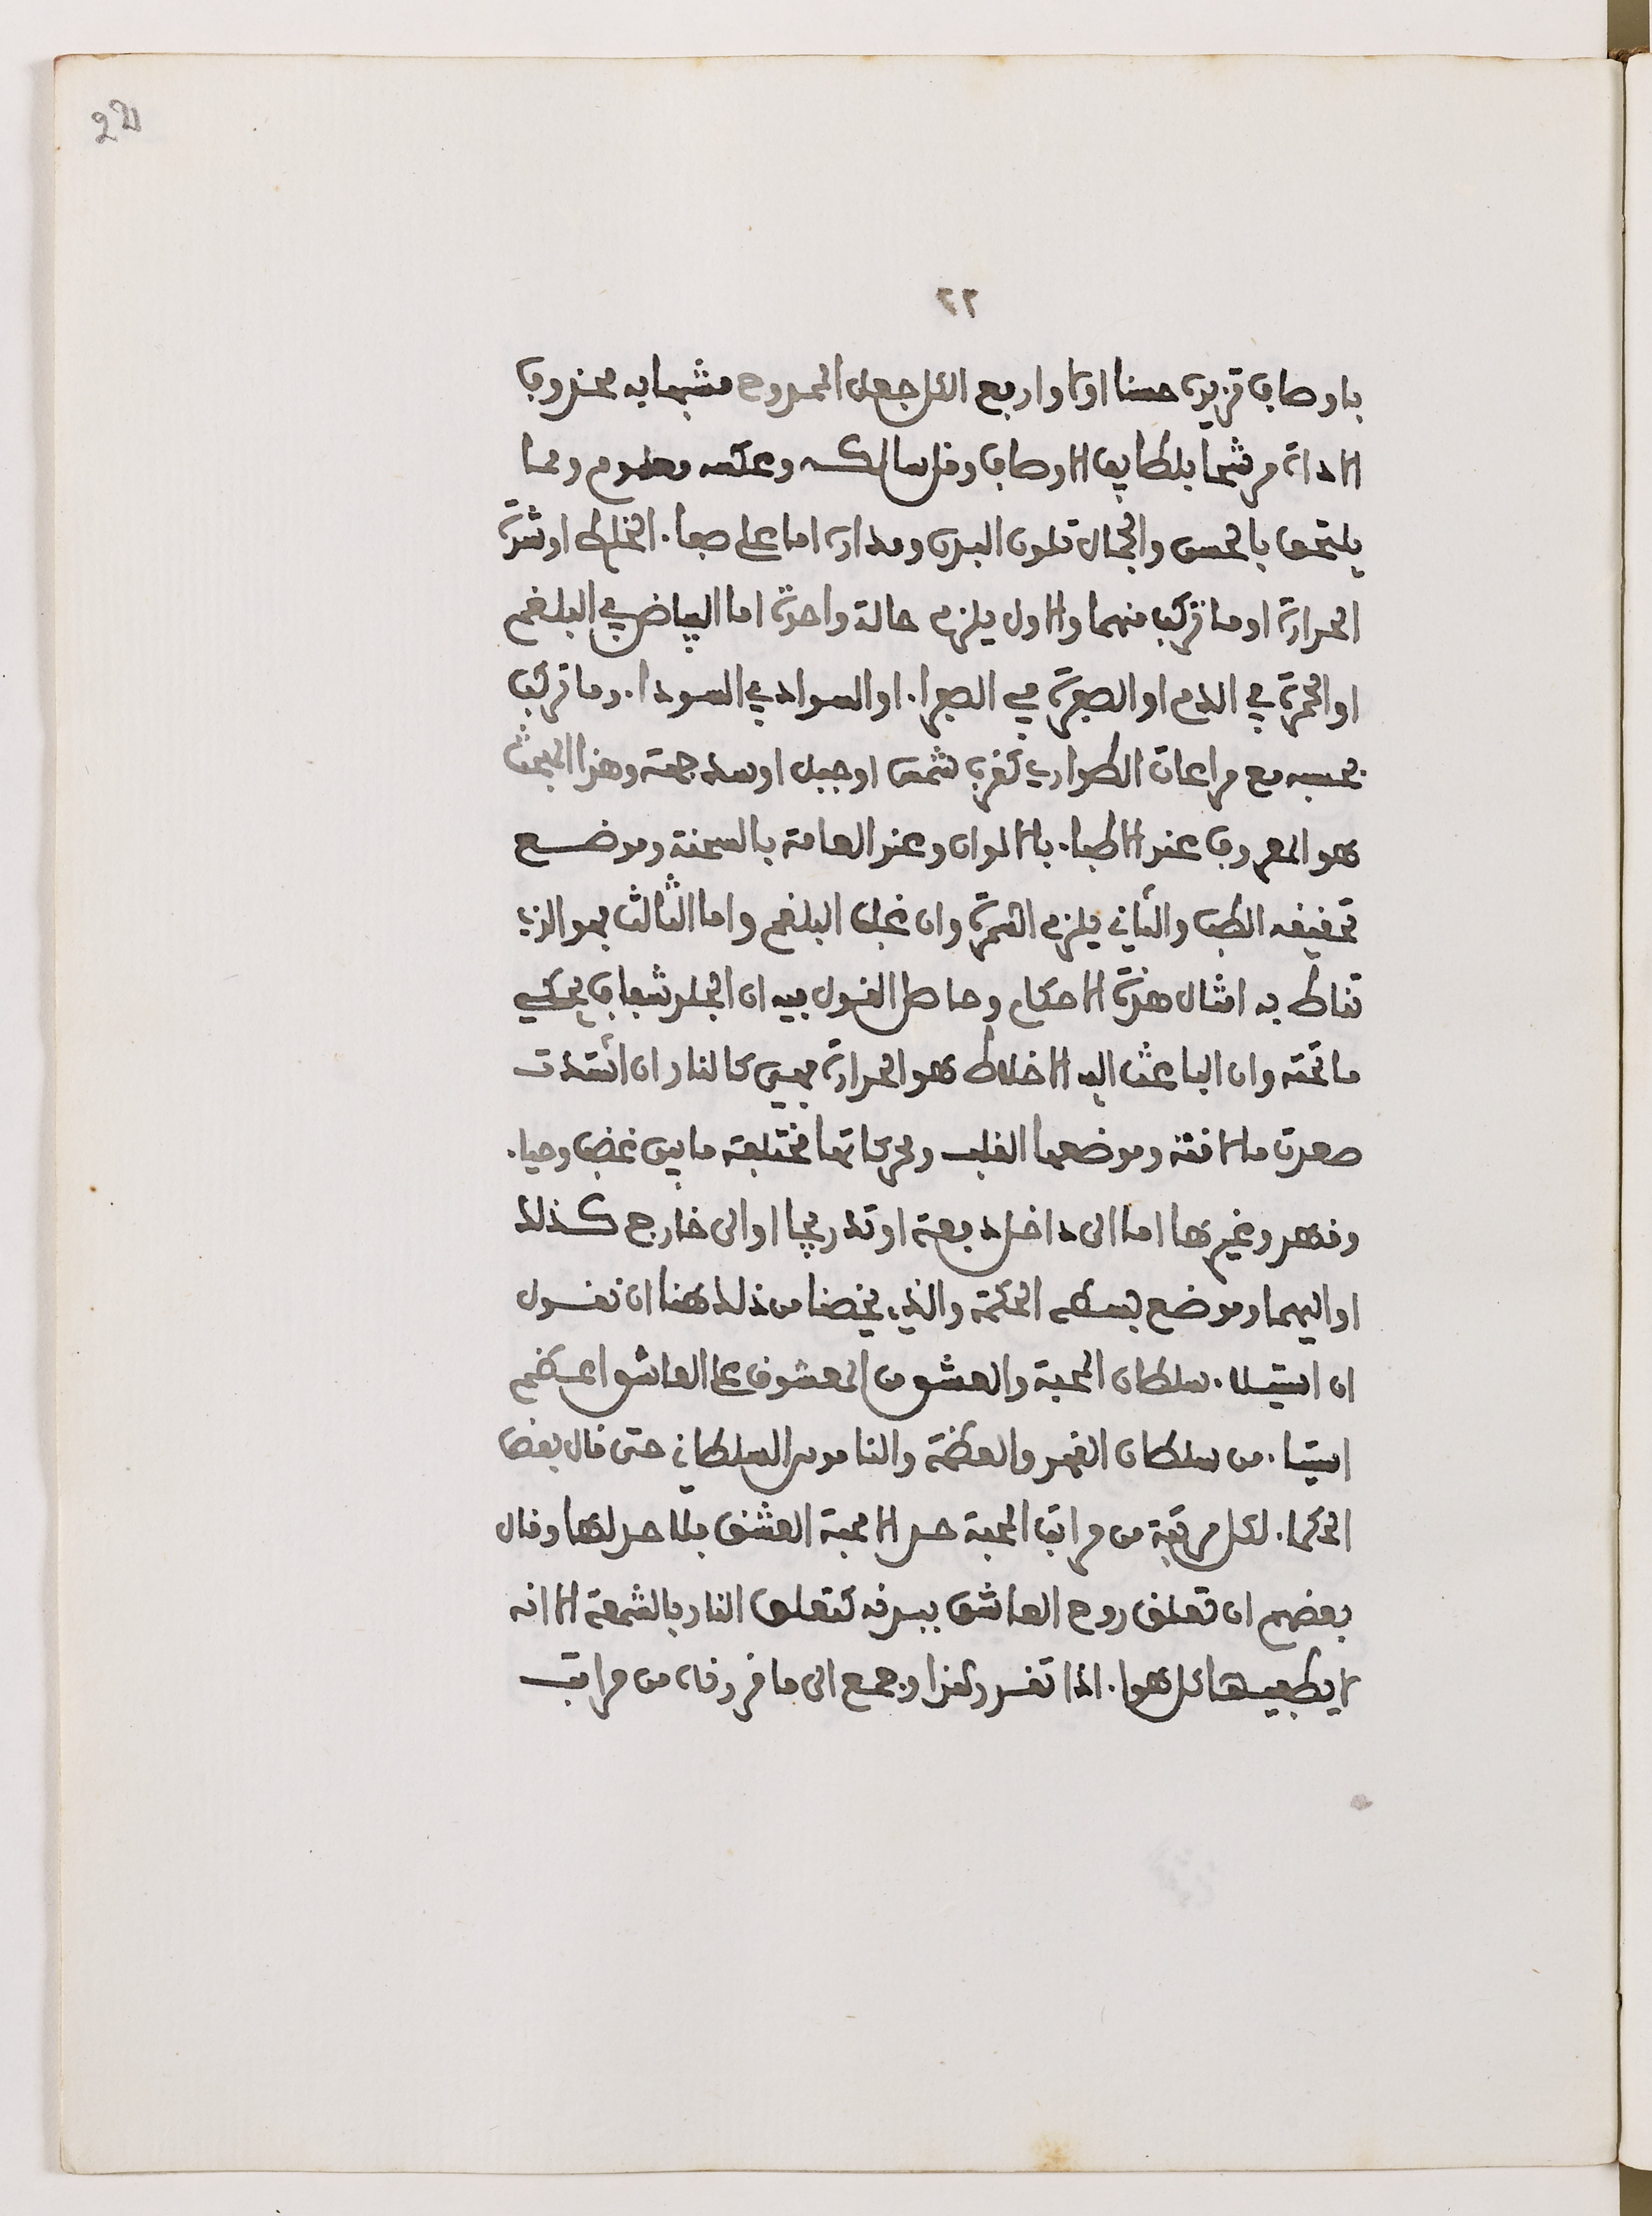 22
٢٢
باوصاف تزيده حسنا اولا وارفع الكل جعل الممدوح مشبها به محذوف
الاداة مرشحا بلطايف الاوصاف وقل سالكه وعكسه معلوم ومما
يلتحق بالحسن والجمال تلون البدن ومداره اما على صفاء الخلط او شدة
الحرارة او ما تركب منهما والاول يلزم حالة واحدة اما البياض في البلغم
او الحمرة في الدم او الصفرة في الصفراء او السواد في السوداء وما تركب
بحسبه مع مراعات الطوارى كقرب شمس او جبل او سد جهة وهذا المبحث
هو المعروف عند الاطباء بالالوان وعند العامة بالسحنة وموضع
تحقيقه الطب والثاني يلزم السمرة وان غلب البلغم واما الثالث فهو الذي
تناط به امثال هذه الاحكام وحاصل القول فيه ان الجلد شفاف يحكي
ما تحته وان الباعث اليه الاخلاط هو الحرارة فهي كالنار ان اشتدت
صعدت ما لاقته وموضعها القلب ومحركاتها مختلفة ما بين غضب وحياء
وقهر وغيرها اما الى داخل دفعة او تدريجا او الى خارج كذلك
او اليهما وموضع بسطه الحكمة والذي يخصنا من ذلك هنا ان نقول
ان استيلاء سلطان المحبة والعشق من المعشوق على العاشق اعظم
استيلاء من سلطان القهر والعظمة والناموس السلطاني حتى قال بعض
الحكماء لكل مرتبة من مراتب المحبة حد الا محبة العشق فلا حد لها وقال
بعضهم ان تعلق روح العاشق ببدنه كتعلق النار بالشمعة الا انه
لا يطفيها كل هواء اذا تقرر هذا وجمع الى ما قررناه من مراتب